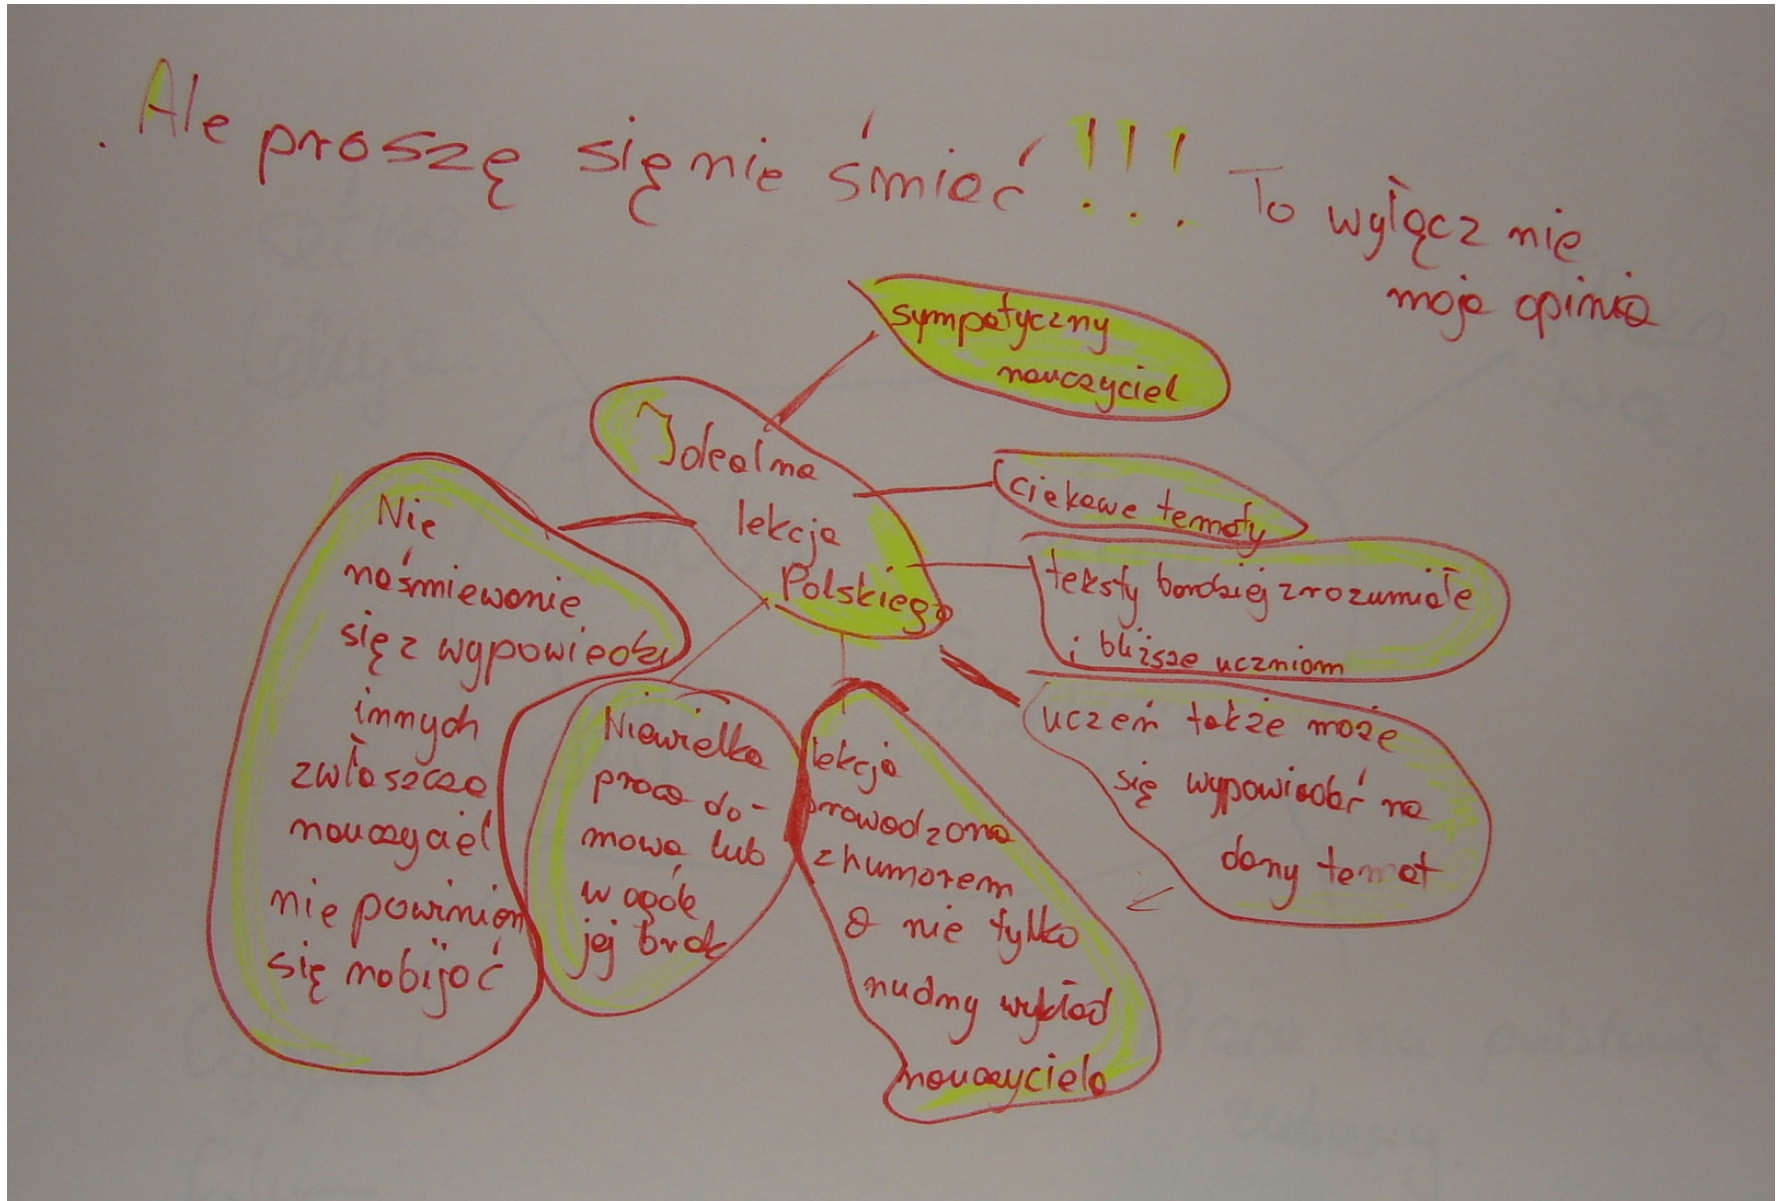 Ale proszę się nie śmiać !!! To wyłącznie
moja opinia
sympatyczny
nauczyciel
Idealna
lekcja
Polskiego
ciekawe tematy
teksty bardziej zrozumiałe
i bliższe uczniom
uczeń także może
się wypowiadać na
dany temat
lekcja
prowadzona
z humorem
a nie tylko
nudny wykład
nauczyciela
Niewielka
praca do-
mowa lub
w ogóle
jej brak
Nie
naśmiewanie
się z wypowiedzi
innych
zwłaszcza
nauczyciel
nie powinien
się nabijać